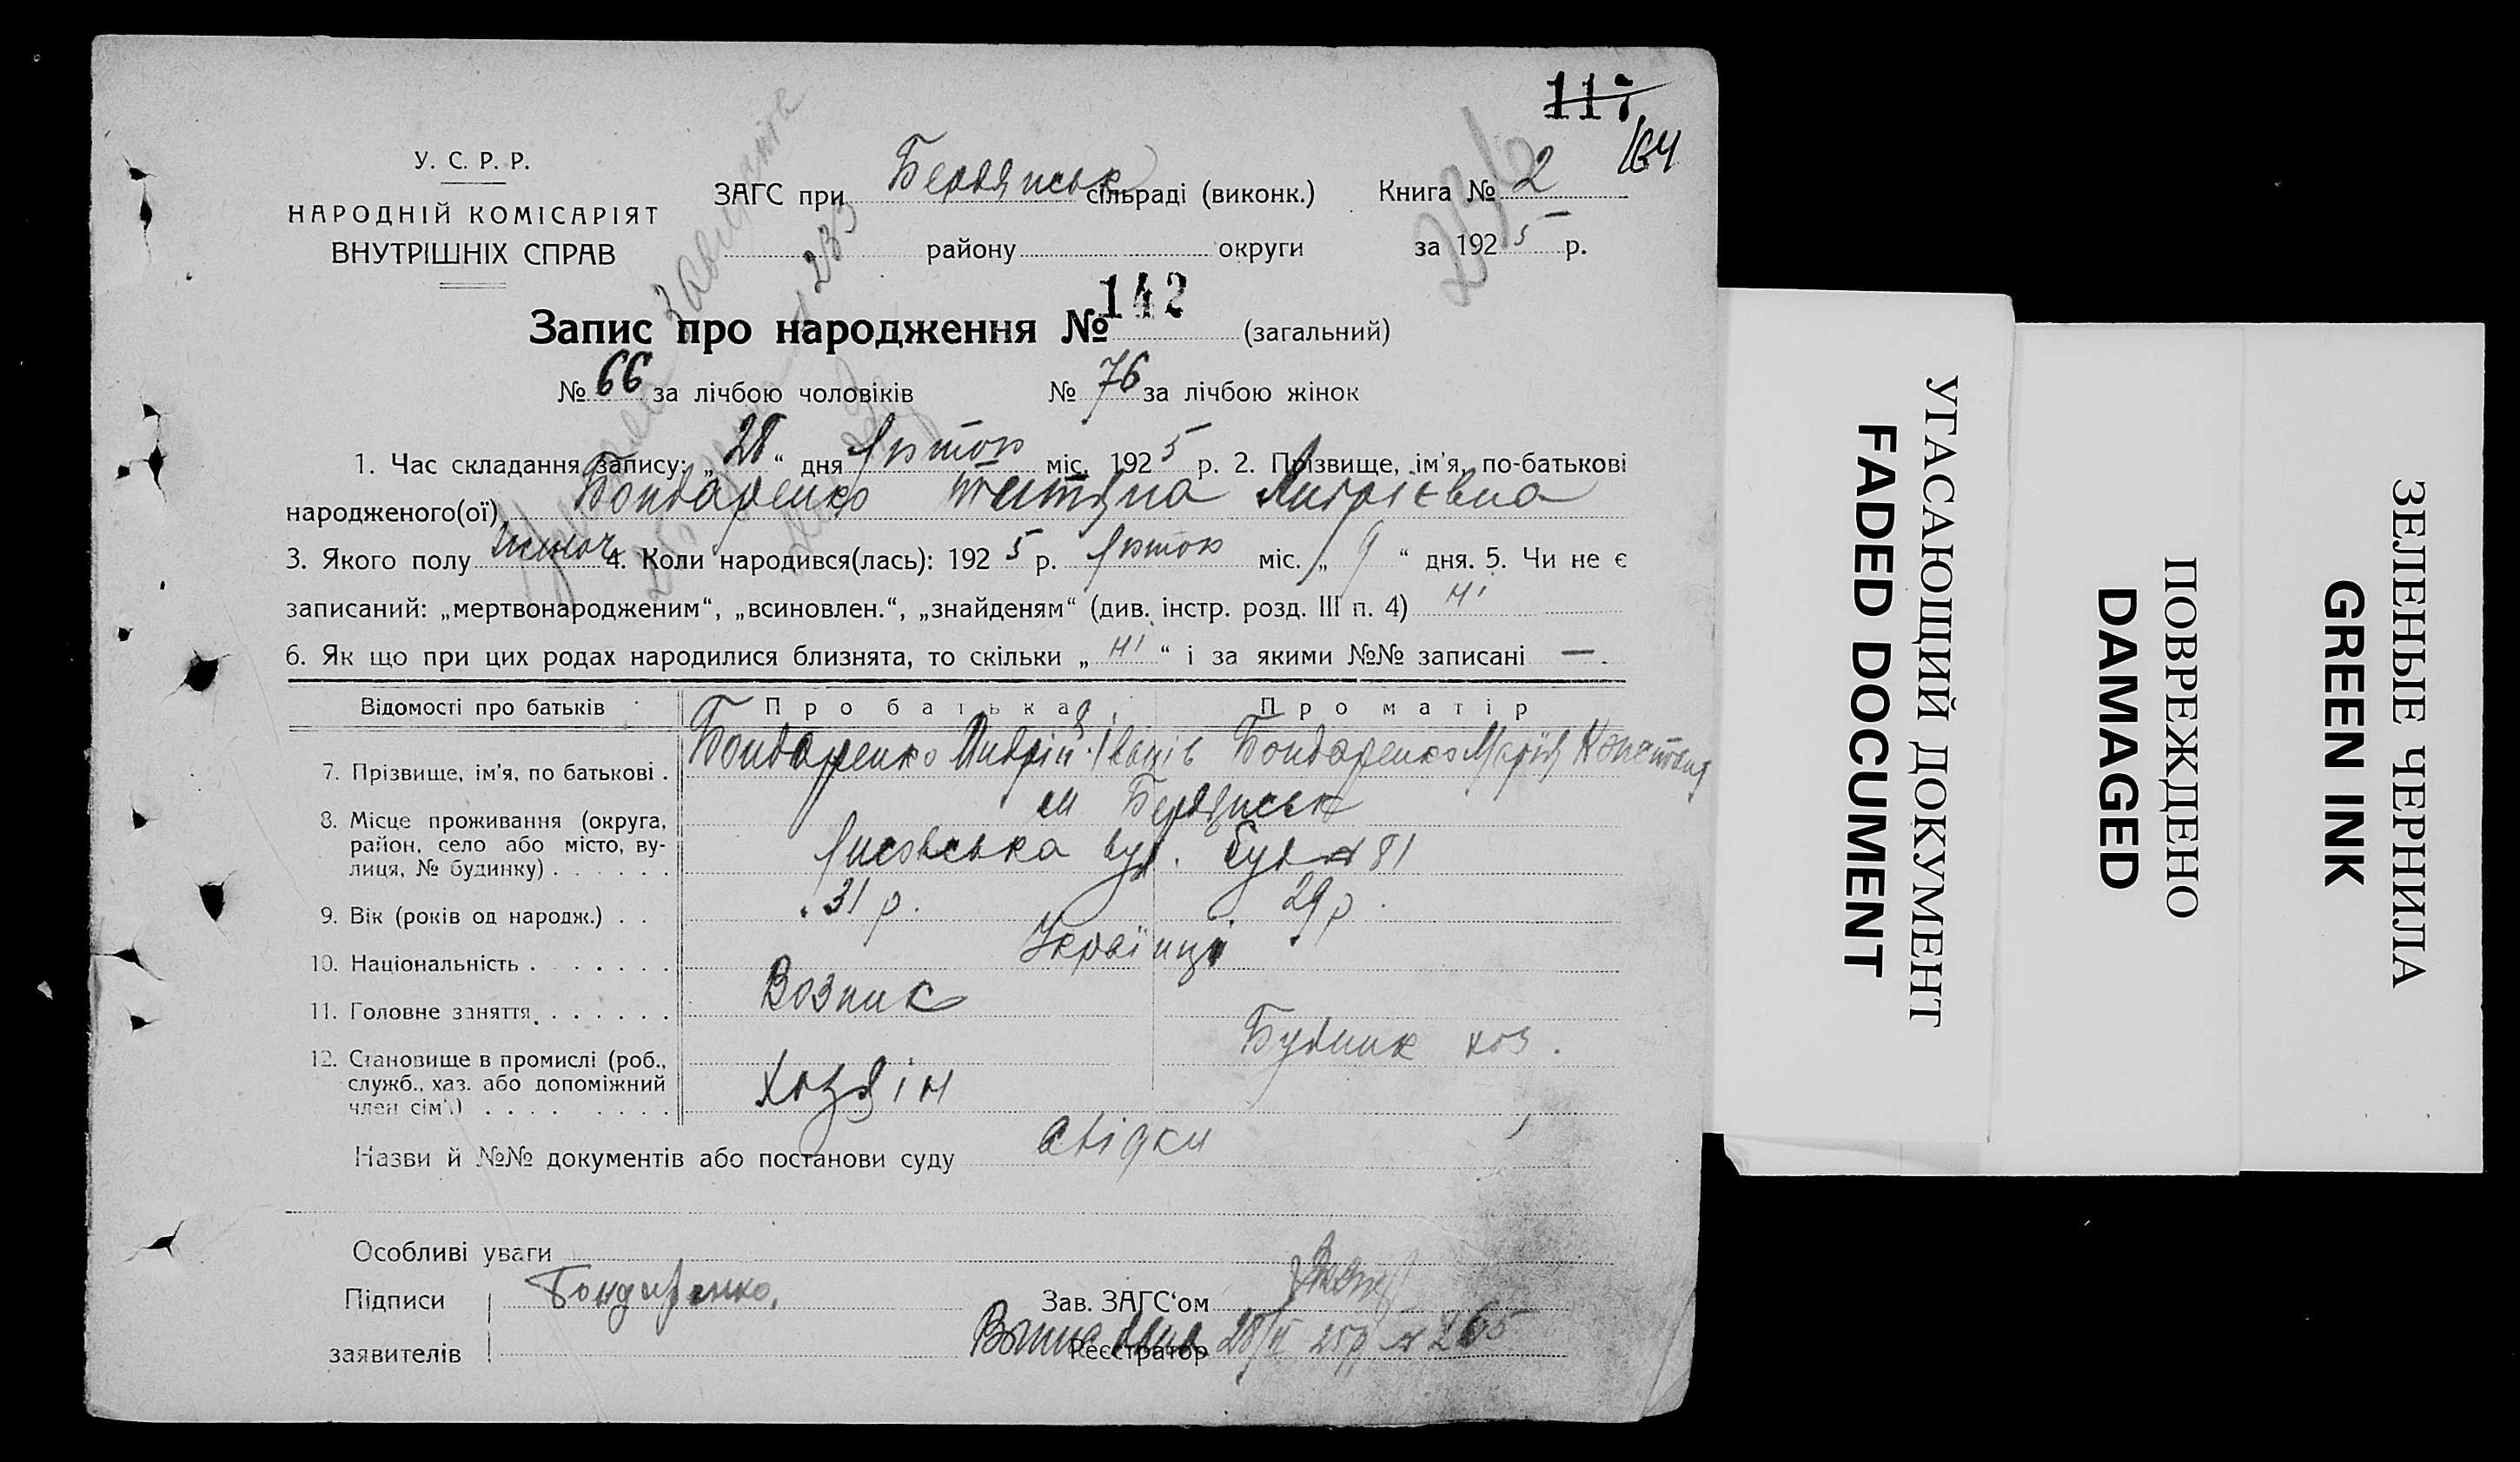 117
164
236
У. С. Р. Р.
НАРОДНІЙ КОМІСАРІЯТ
ВНУТРІШНІХ СПРАВ
ЗАГС при Бердянськ сільраді (виконк.) Книга № 2
району округи за 1925 р.
Запис про народження № 142 (загальний)
№ 66 за лічбою чоловіків № 76 за лічбою жінок
1. Час складання запису: „28“ дня Лютого міс. 1925 р. 2. Прізвище, ім'я, по-батькові
народженого(ої) Бондаренко Тетяна Андрієвна
3. Якого полу жіноч 4. Коли народився(лась): 1925 р. Лютого міс. „9“ дня. 5. Чи не є
записаний: „мертвонародженим“, „всиновлен.“, „знайденям“ (див. інстр. розд. III п. 4) ні
6. Як що при цих родах народилися близнята, то скільки „ні“ і за якими №№ записані —.
Відомості про батьків Про батька Про матір
7. Прізвище, ім'я, по батькові . Бондаренко Андрій Іванів Бондаренко Марія
8. Місце проживання (округа, район, село або місто, вулиця, № будинку) . . . . . . м Бердянськ
вул. буд № 81
9. Вік (років од народж.) . . 31 р. 29 р.
10. Національність . . . . . . . Українці
11. Головне заняття . . . . . . . Возник
12. Становище в промислі (роб., служб., хаз. або допоміжний член сім'ї) . . . . . . . . Хозяін Будник хоз.
Назви й №№ документів або постанови суду свідки
Особливі уваги
Підписи Бондаренко. Зав. ЗАГС‘ом
заявителів Реєстратор 28/II 25р № 265
УГАСАЮЩИЙ ДОКУМЕНТ
FADED DOCUMENT
ПОВРЕЖДЕНО
DAMAGED
ЗЕЛЕНЫЕ ЧЕРНИЛА
GREEN INK